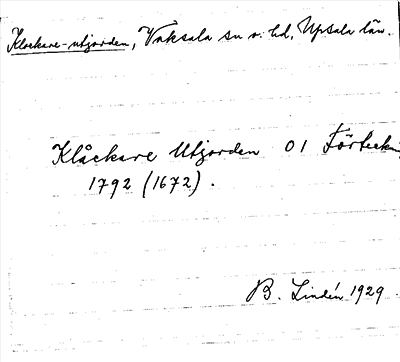 Klockare-utjorden, Vaksala sn o. hd, Upsala län.
Klåckare Utjorden 01 Förteckn
1792 (1672).
B. Lindén 1929.